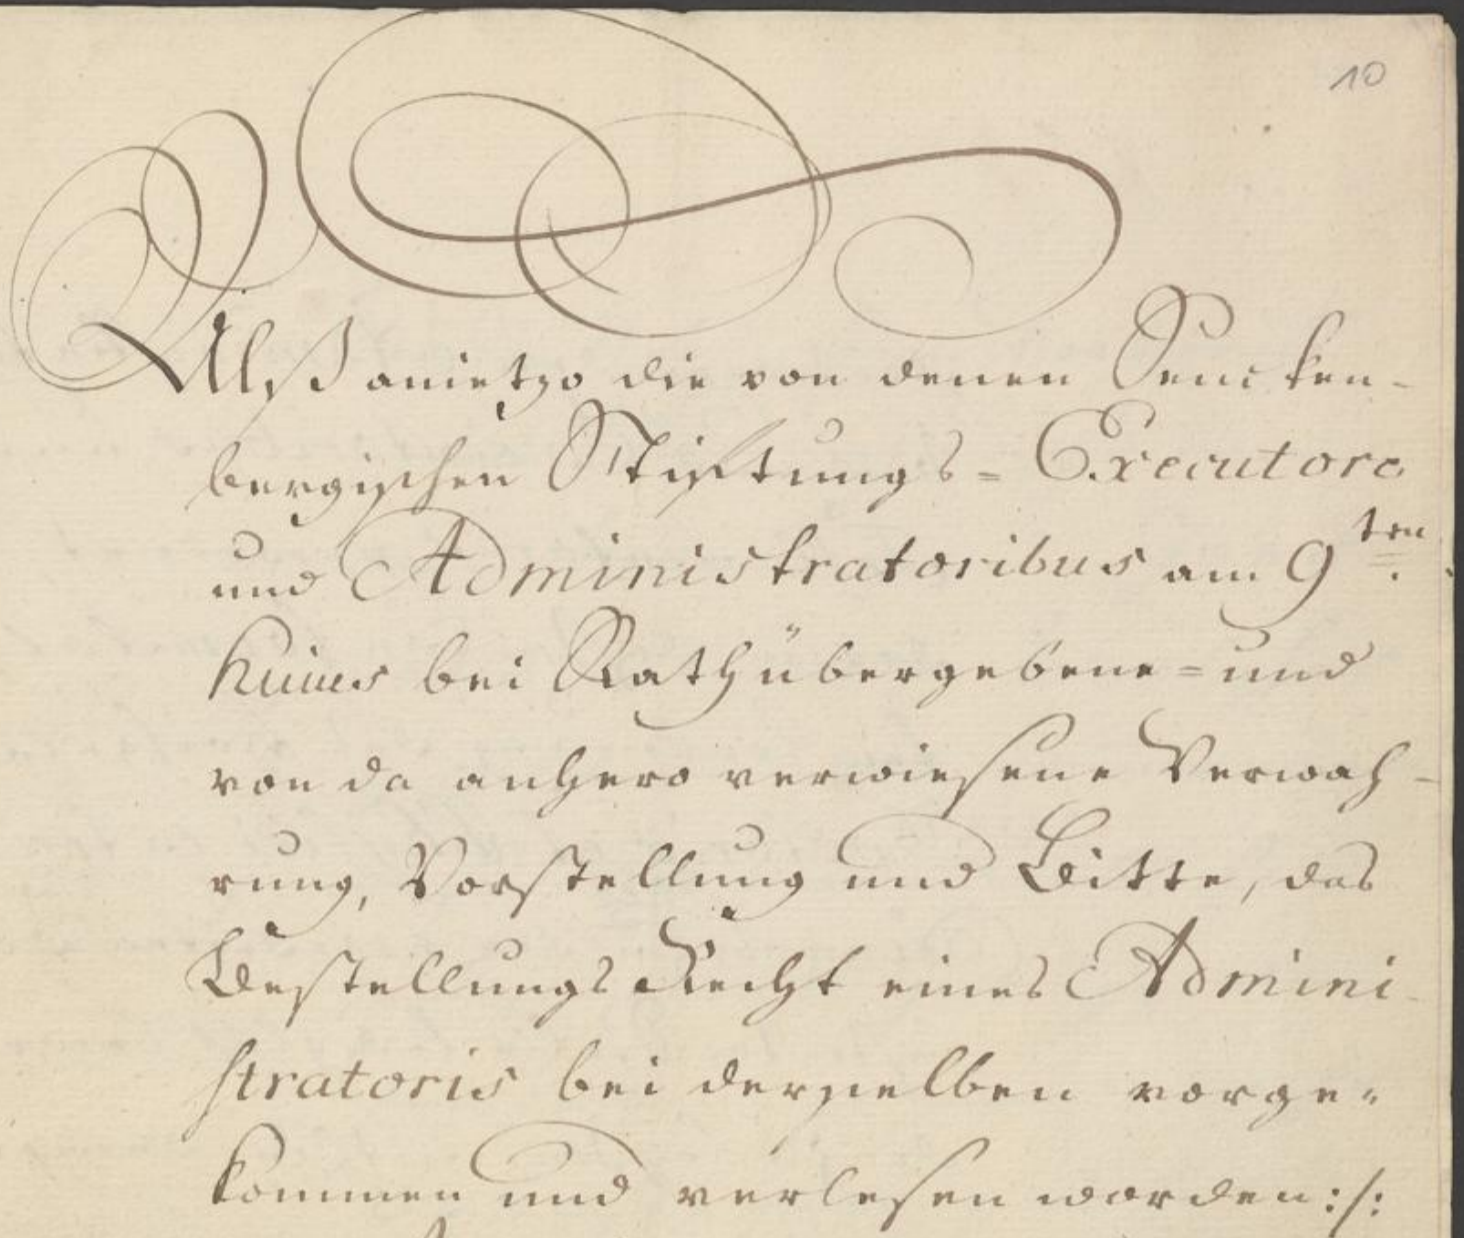 10
Alß anietzo die von denen Sencken-
bergischen Stiftungs= Executore
und Administratoribus am 9ten.
huius bei Rath übergebene= und
von da anhero verwiesene Verwah-
rung, Vorstellung und Bitte, das
Bestellungs Recht eines Admini-
stratoris bei derselben vorge-
kommen und verlesen worden :/: